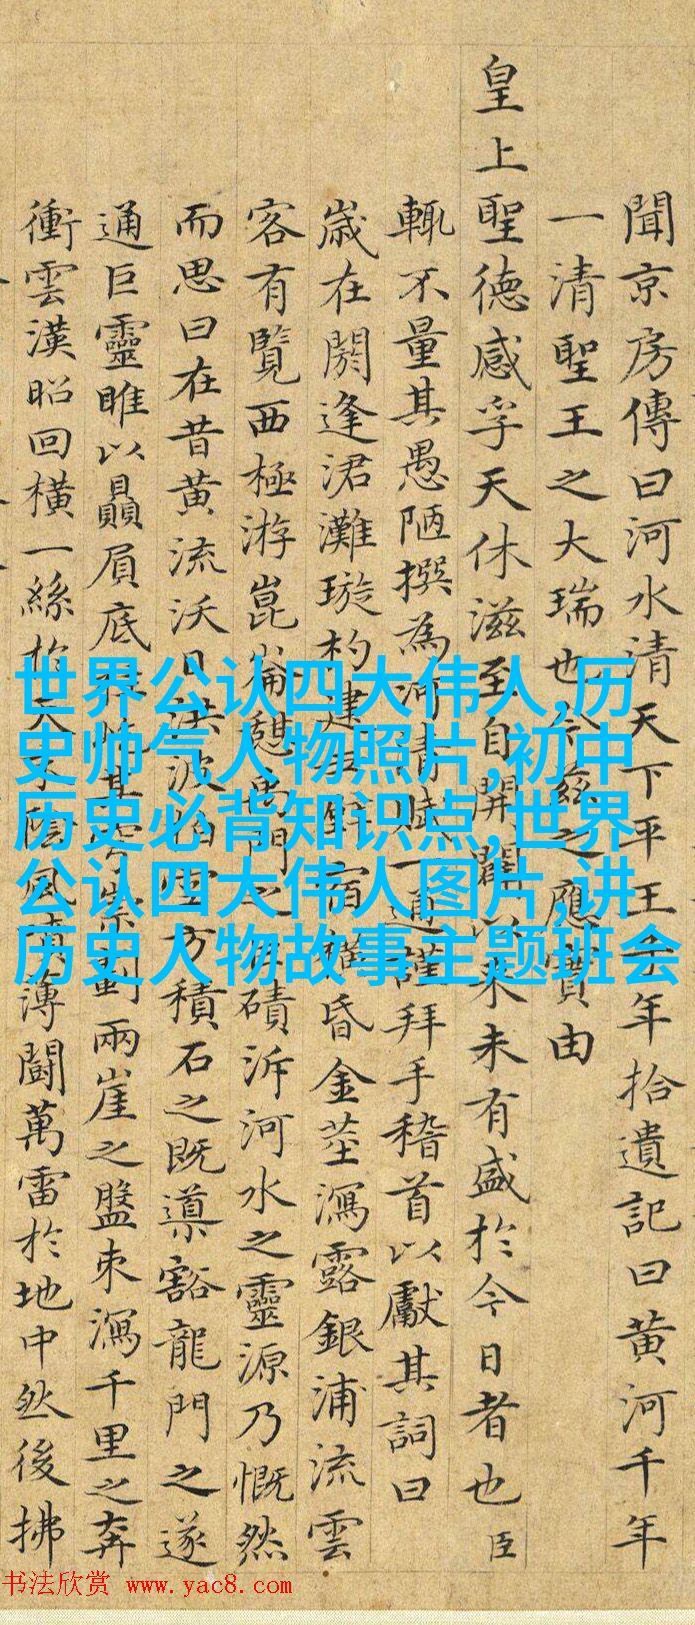 聞京房傳曰河水清天下平王子年拾遺記曰黃河千年
一清聖王之大瑞也今茲之應寶由
皇上聖德感孚天休滋至自開闢以來未有盛於今日者也臣
輙不量其愚陋撰為河清賦一通謹拜手稽首以獻其詞曰
歲在閼逢涒灘璇杓建宿昏金莖瀉露銀浦流雲
客有覽西極游崑崙憩禹門之磧泝河水之靈源乃慨然
而思曰在昔黃流沃日洪波拍空方積石之既導豁龍門之遂
通巨靈雎以贔屓底其崇劃兩崖之盤束瀉千里之奔
衝雲漢昭回橫一絲於天風噴薄鬬萬雷於地中然後拂
世界公认四大伟人,历
史帅气人物照片,初中
历史必背知识点,世界
公认四大伟人图片,讲
历史人物故事主题班会
书法欣赏 www.yac8.com